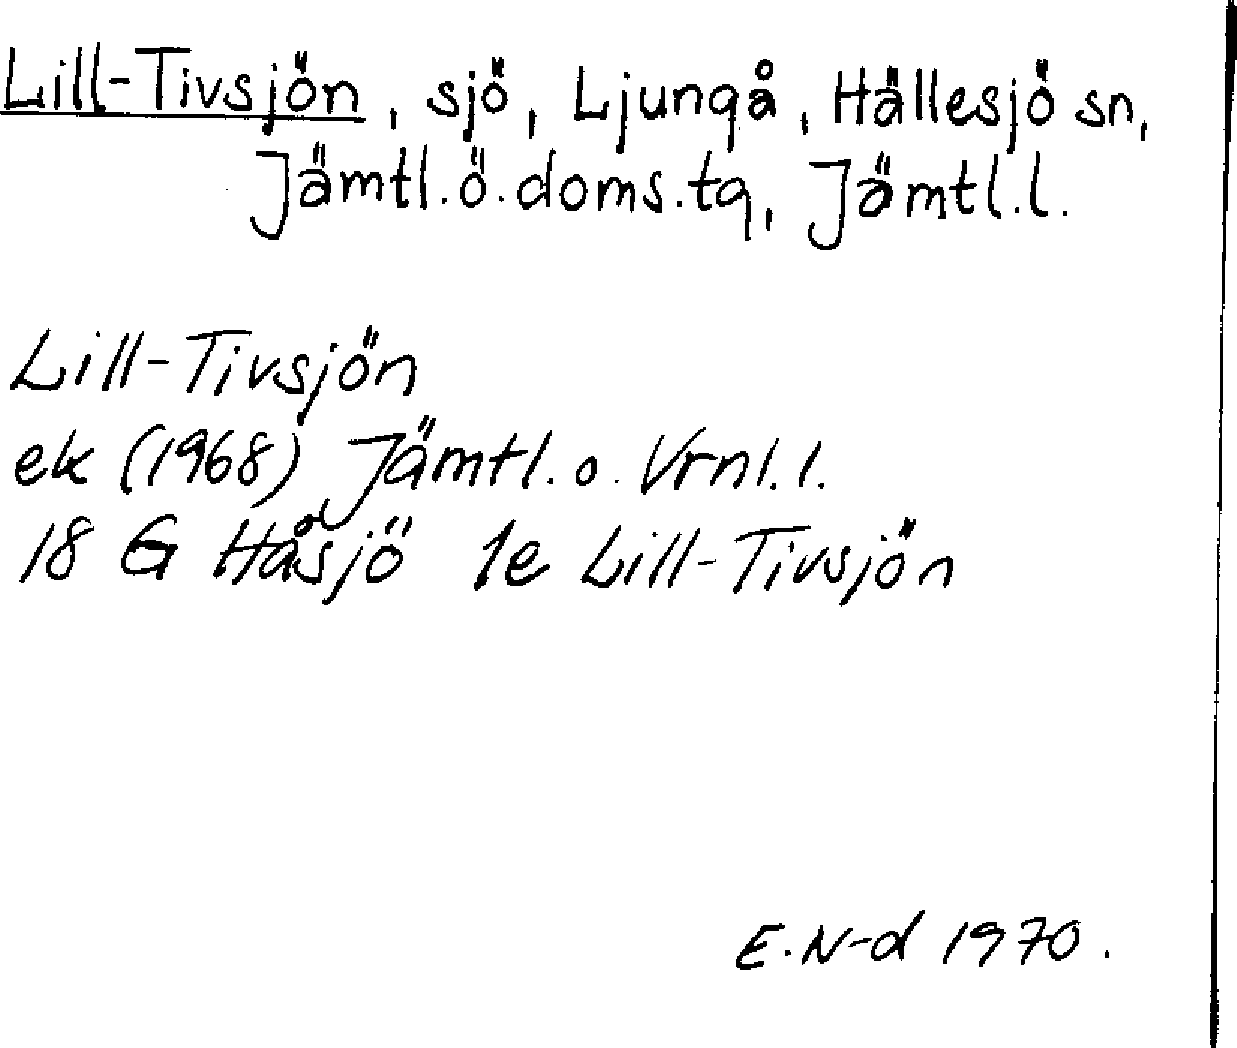 Lill-Tivsjön, sjö, Ljungå, Hällesjö sn,
Jämtl.ö.doms.tg, Jämtl.l.
Lill-Tivsjön
ek (1968) Jämtl.o.Vrnl.l.
18 G Håsjö 1e Lill-Tivsjön
E.N-d 1970.